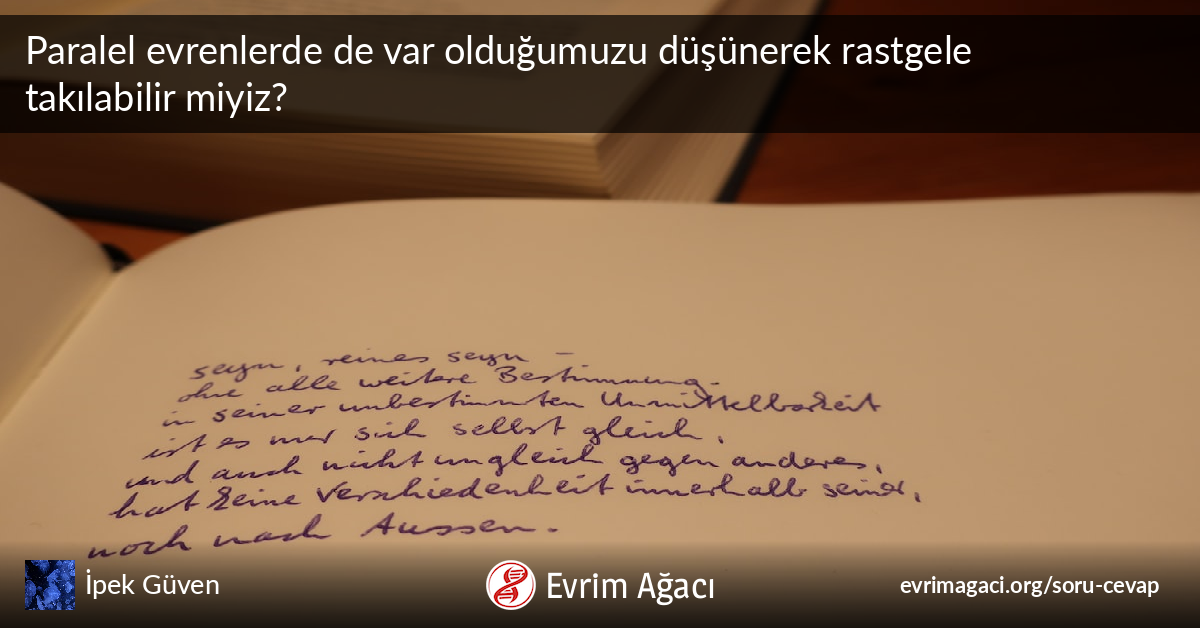 Paralel evrenlerde de var olduğumuzu düşünerek rastgele
takılabilir miyiz?
seyn, reines seyn –
ohne alle weitere Bestimmung.
in seiner unbestimmten Unmittelbarkeit
ist es nur sich selbst gleich,
und auch nicht ungleich gegen anderes,
hat keine Verschiedenheit innerhalb seiner,
noch nach Aussen.
İpek Güven
Evrim Ağacı
evrimagaci.org/soru-cevap